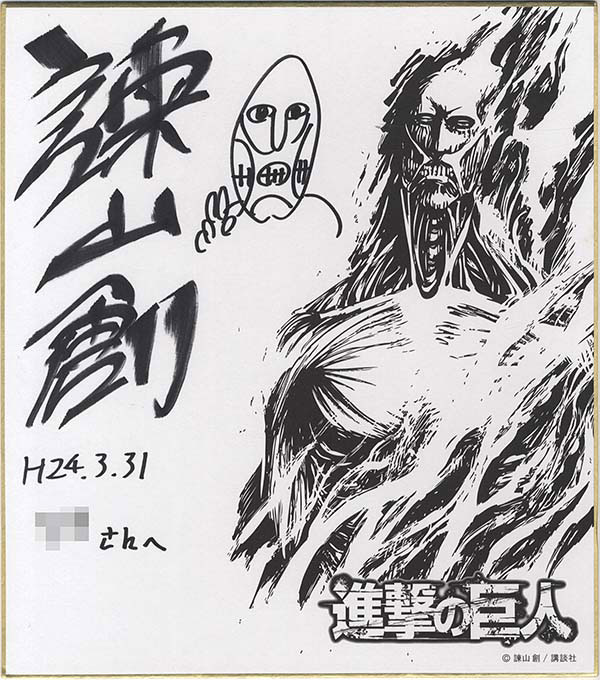 諫山創
H24.3.31
さんへ
進撃の巨人
© 諫山創/講談社